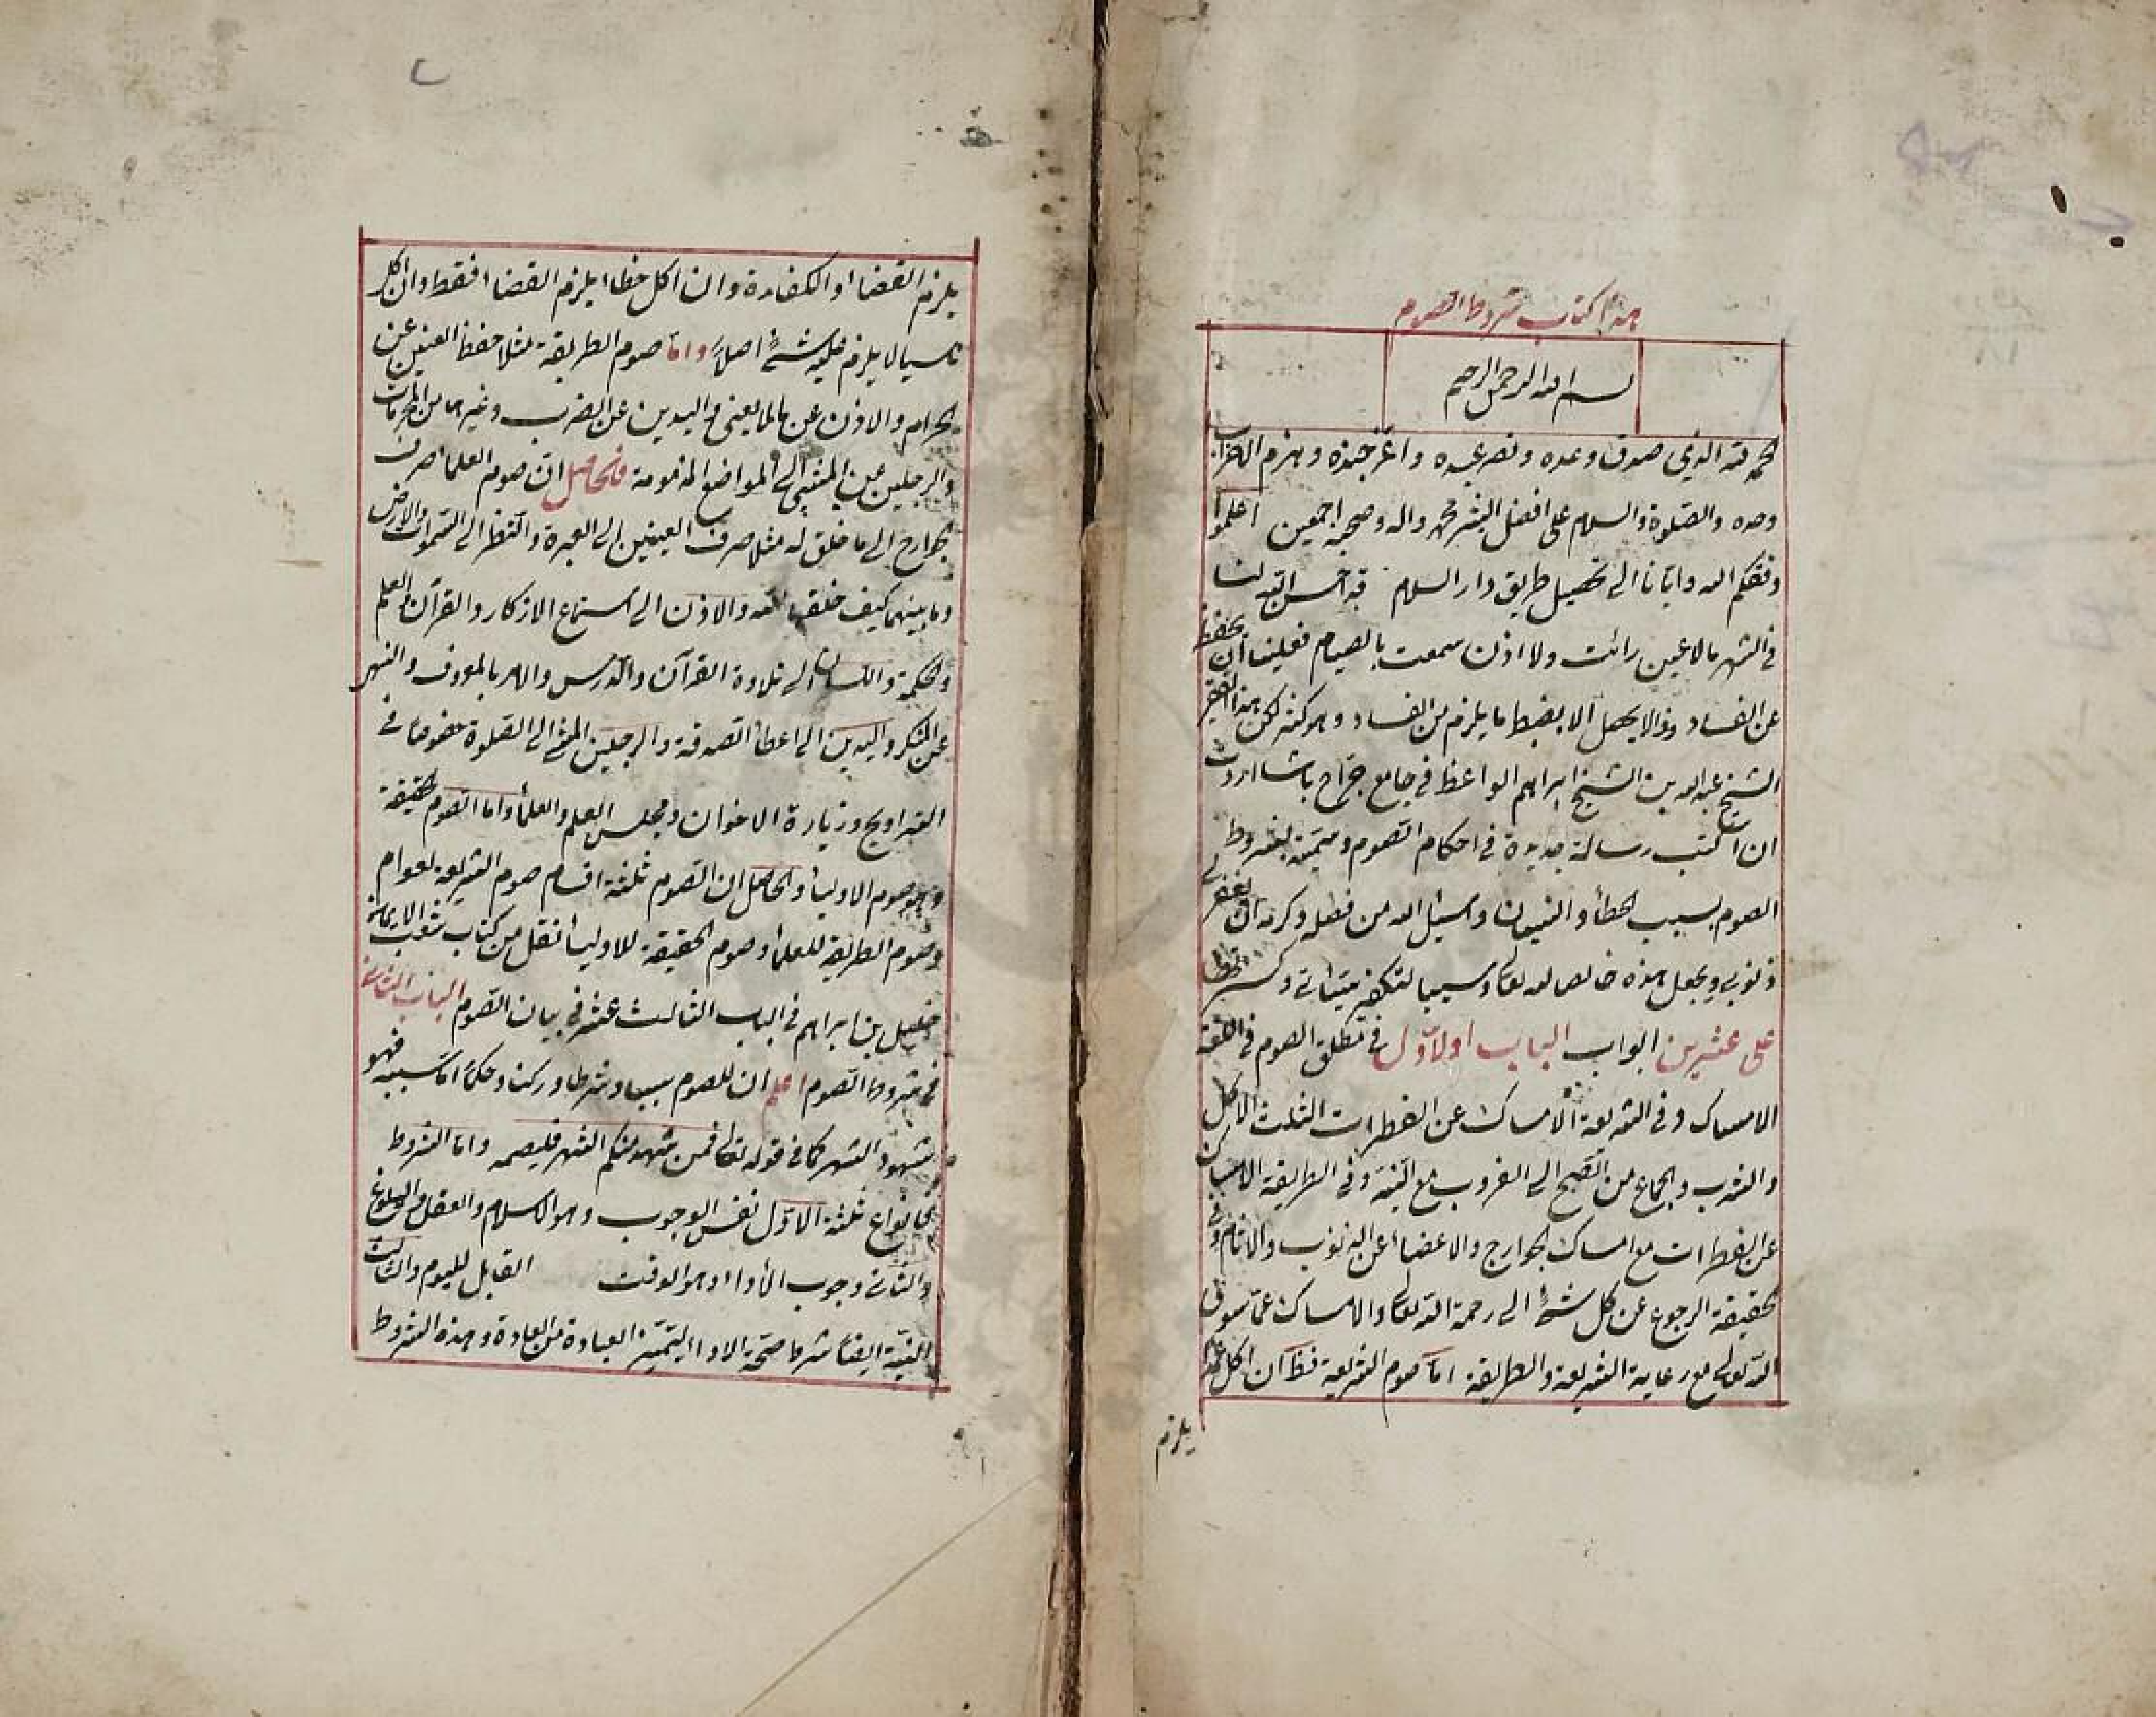 هذا كتاب شروط الصوم
بسم الله الرحمن الرحيم
الحمد لله الذي صدق وعده ونصر عبده واعز جنده وهزم الاحزاب
وحده والصلوة والسلام على افضل البشر محمد واله وصحبه اجمعين اعلموا
وفقكم الله وايانا الى تحصيل طريق دار السلام قد احسن الله لنا
في الشهر مالا عين رائت ولا اذن سمعت بالصيام فعلينا ان نحفظ
عن الفساد وذا لا يحصل الا بضبط ما يلزم من الفساد وهو كثير لكن هذا الفقير
الشيخ عبد الله بن الشيخ ابراهيم الواعظ في جامع جراح باشا اردت
ان اكتب رسالة جديدة في احكام الصوم ومتممة بشروط
الصوم بسبب الخطأ والنسيان واسئل الله من فضله وكرمه ان يغفر لي
ذنوبي ويجعل هذه خالصا لله تعالى وسببا لتكفير سيئاتي
على عشرين ابواب الباب اولاول في مطلق الصوم في اللغة
الامساك وفي الشريعة الامساك عن المفطرات الثلث الاكل
والشرب والجماع من الصبح الى الغروب مع النية وفي الطريقة الامساك
عن المفطرات مع امساك الجوارح والاعضاء عن الذنوب والاثام وفي
الحقيقة الرجوع عن كل شئ الى رحمة الله تعالى والامساك عما سوى
الله تعالى مع رعاية الشريعة والطريقة اما صوم الشريعة فظ ان اكل عمدا
يلزم
يلزم القضاء والكفارة وان اكل خطاء يلزم القضاء فقط وان اكل
ناسيا لا يلزم عليه شئ اصلا واما صوم الطريقة مثلا حفظ العينين عن
الحرام والاذن عن مالا يعنى واليدين عن الضرب وغيرها من المحرمات
والرجلين عن المشي الى المواضع المذمومة فالحاصل ان صوم العلماء صرف
الجوارح الى ما خلق له مثلا صرف العينين الى العبرة والنظر الى السموات والارض
وما بينهما كيف خلقها الله والاذن الى استماع الاذكار والقرآن والعلم
والحكمة واللسان الى تلاوة القرآن والدرس والامر بالمعروف والنهى
عن المنكر واليدين الى اعطاء الصدقة والرجلين المشي الى الصلوة خصوصا في
التراويح وزيارة الاخوان ومجلس العلم والعلماء واما الصوم الحقيقة
وهو صوم الاولياء والحاصل ان الصوم ثلثة اقسام صوم الشريعة لعوام
وصوم الطريقة للعلماء وصوم الحقيقة للاولياء نقل من كتاب شعب الايمان
خليل بن ابراهيم في الباب الثالث عشر في بيان الصوم الباب الثاني
في شروط الصوم اعلم ان للصوم سببا وشرطا وركنا وحكما اما سببه فهو
شهود الشهر كما في قوله تعالى فمن شهد منكم الشهر فليصمه واما الشروط
فانواع ثلثة الاول نفس الوجوب وهو الاسلام والعقل والبلوغ
والثاني وجوب الاداء وهو الوقت القابل لليوم والثالث
النية ايضا شرط صحة الاداء لتميز العبادة من العادة وهذه الشروط